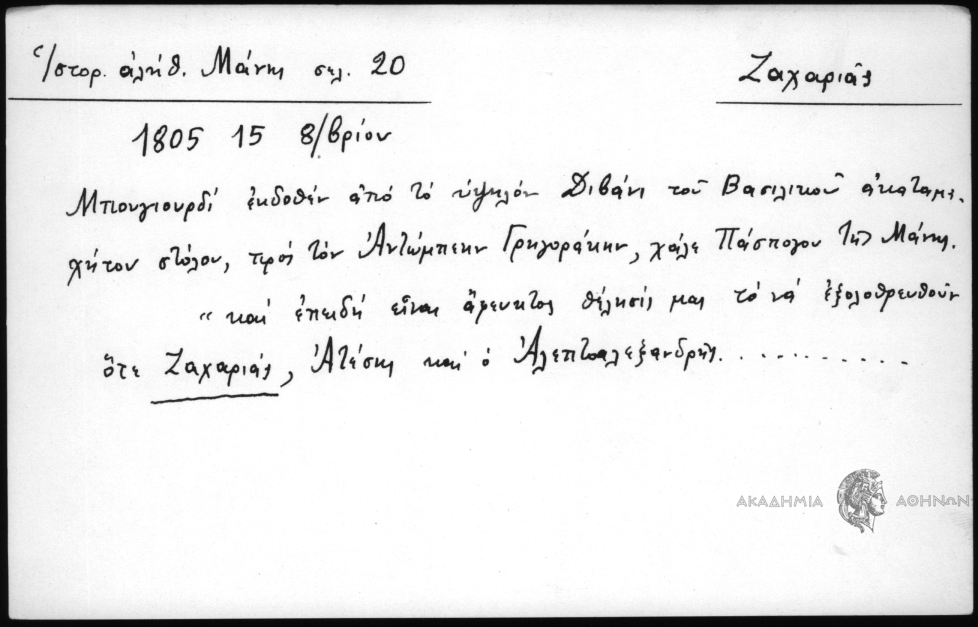 Ἱστορ. ἀλήθ. Μάνης σελ. 20
Ζαχαριᾶς
1805 15 8/βρίου
Μπουγιουρδί ἐκδοθέν ἀπό τό ὑψηλόν Διβάνι τοῦ Βασιλικοῦ ἀκαταμα-
χήτου στόλου, πρός τόν Ἀντώμπεην Γρηγοράκην, χάλε Πάσπογου τῆς Μάνης.
"καί ἐπειδή εἶναι ἄφευκτος θέλησίς μας τό νά ἐξολοθρευθοῦν
ὅτε Ζαχαριᾶς, Ἀτέσης καί ὁ Ἀλεπτσαλεξανδρῆς..........
ΑΚΑΔΗΜΙΑ ΑΘΗΝΩΝ